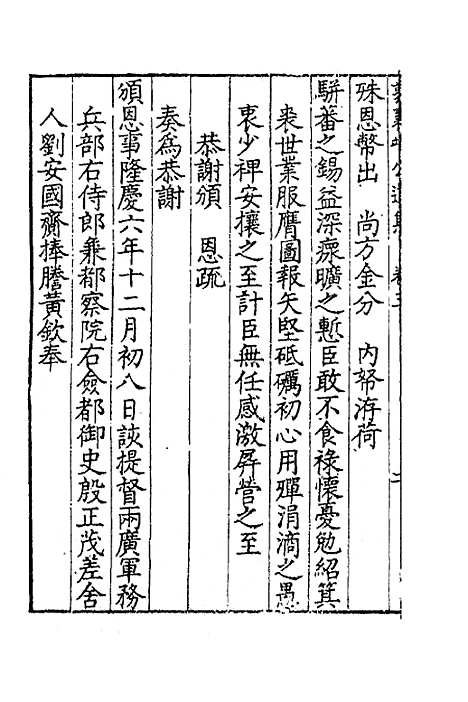 殊恩幣出　尚方金分　內帑洊荷
駢蕃之錫益深瘝曠之慙臣敢不食祿懷憂勉紹箕
裘世業服膺圖報矢堅砥礪初心用殫涓滴之愚
衷少裨安攘之至計臣無任感激屏營之至
恭謝頒　恩疏
奏為恭謝
頒恩事隆慶六年十二月初八日該提督兩廣軍務
兵部右侍郎兼都察院右僉都御史殷正茂差舍
人劉安國齎捧謄黃欽奉